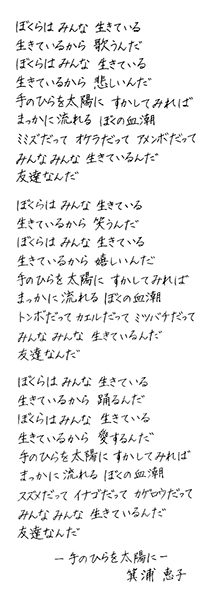 ぼくらは みんな 生きている
生きているから 歌うんだ
ぼくらは みんな 生きている
生きているから 悲しいんだ
手のひらを太陽に すかしてみれば
まっかに 流れる ぼくの血潮
ミミズだって オケラだって アメンボだって
みんな みんな 生きているんだ
友達なんだ
ぼくらは みんな 生きている
生きているから 笑うんだ
ぼくらは みんな 生きている
生きているから 嬉しいんだ
手のひらを太陽に すかしてみれば
まっかに 流れる ぼくの血潮
トンボだって カエルだって ミツバチだって
みんな みんな 生きているんだ
友達なんだ
ぼくらは みんな 生きている
生きているから 踊るんだ
ぼくらは みんな 生きている
生きているから 愛するんだ
手のひらを太陽に すかしてみれば
まっかに 流れる ぼくの血潮
スズメだって イナゴだって カゲロウだって
みんな みんな 生きているんだ
友達なんだ
ー手のひらを太陽にー
箕浦 恵子